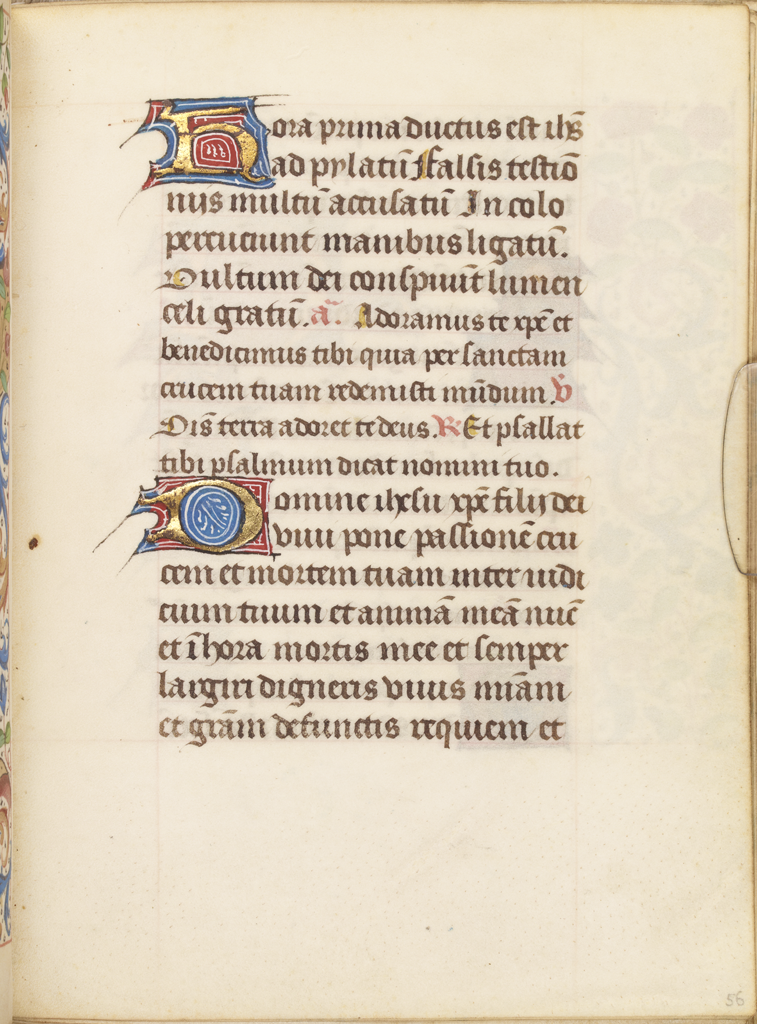 Hora prima ductus est ihs̄
ad pylatū Falsis testiō
nijs multū accusatū In colo
percuciunt manibus ligatū.
Vultum dei conspuūt lumen
celi gratū. a̅. Adoramus te xp̄e et
benedicimus tibi quia per sanctam
crucem tuam redemisti mūdum. v̄
Oīs terra adoret te deus. R Et psallat
tibi psalmum dicat nomini tuo.
Domine ihesu xp̄e filij dei
viui pone passionē cru
cem et mortem tuam inter iudi
cium tuum et animā meā nūc
et ī hora mortis mee et semper
largiri digneris viuis miām
et grām defunctis requiem et
56